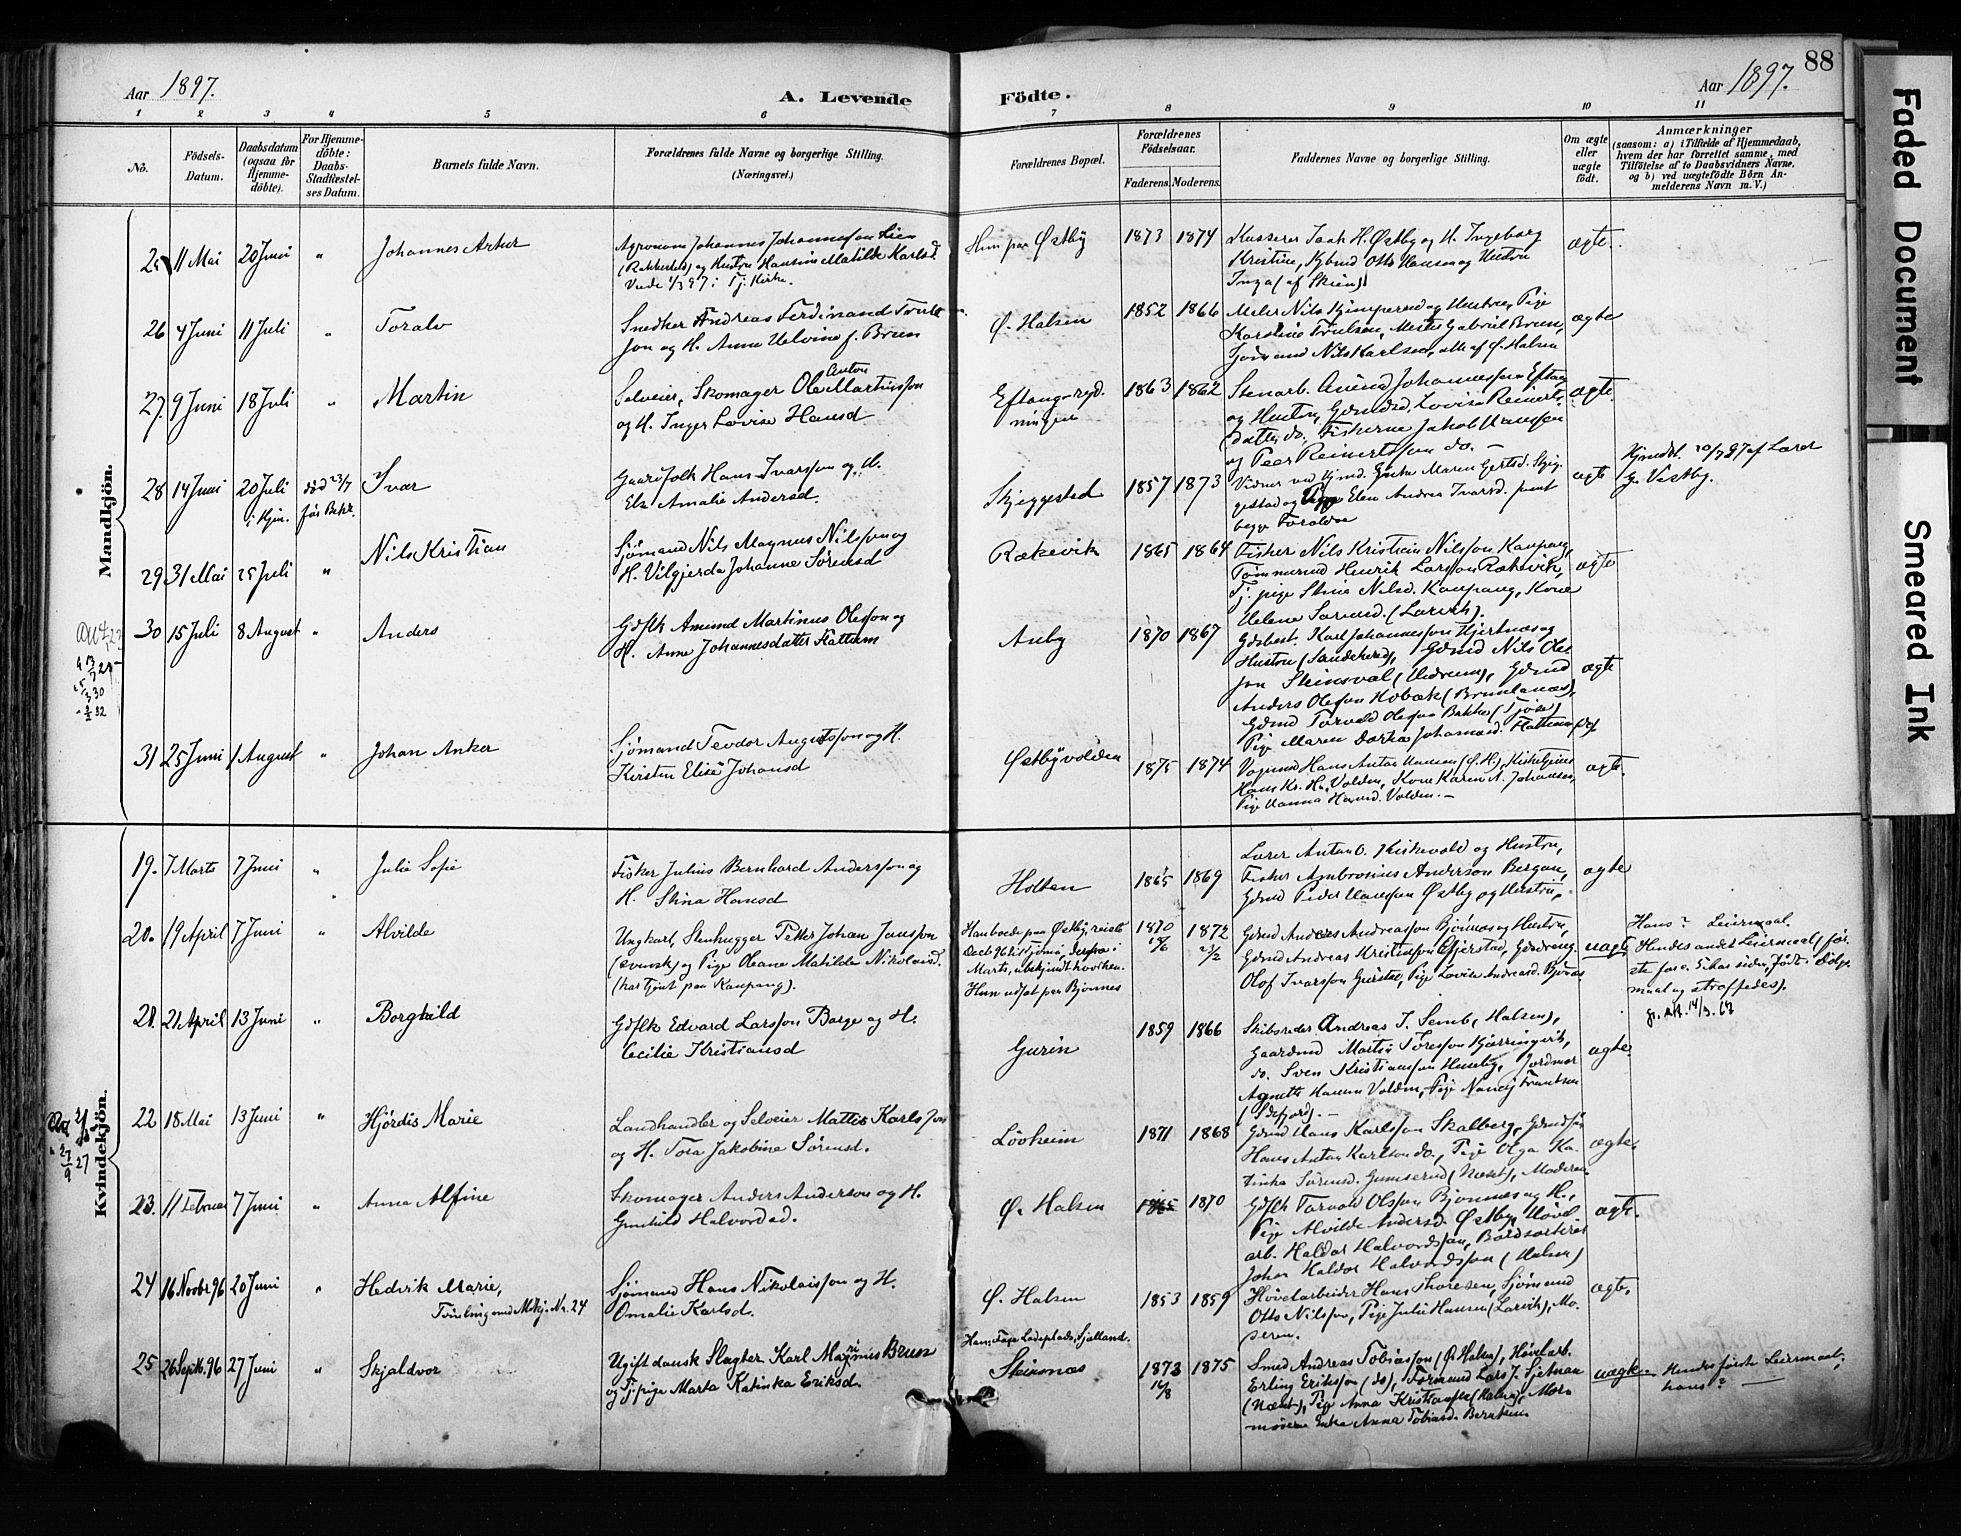 88
Aar 1897.
A. Levende
Födte.
Aar 1897.
1 2 3 4 5 6 7 8 9 10 11
No.
Födsels-
Datum.
Daabsdatum
(ogsaa for
Hjemme-
döbte).
For Hjemme-
döbte:
Daabs-
Stadfæstel-
ses Datum.
Barnets fulde Navn.
Forældrenes fulde Navne og borgerlige Stilling.
(Næringsvei.)
Forældrenes Bopæl.
Forældrenes
Födselsaar.
Faderens. Moderens.
Faddernes Navne og borgerlige Stilling.
Om ægte
eller
uægte
födt.
Anmærkninger
(saasom: a) i Tilfælde af Hjemmedaab,
hvem der har forrettet samme, med
Tilföielse af to Daabsvidners Navne,
og b) ved uægtefödte Börn An-
melderens Navn m. V.)
Mandkjön.
25 11 Mai 20 Juni " Johannes Artur
Agronom Johannes Johannesson Lien
og Hustru Hansine Matilde Karlsd.
Viede 1/3 97 i Tj. Kirke.
Hun paa Østby 1873 1874
Kasserer Isak H. Østby og H. Ingeborg
Kristine, Otto Hansen og Hustru
Inga (af Skien)
ægte.
26 4 Juni 11 Juli " Toralv
Snedker Andreas Ferdinand
son og H. Anne Helvine f. Brun
Ø. Halsen 1852 1866
Maler Nils og Hustru, Pige
Karoline Trulsen, Gabriel Brun,
Sjömand Nils Karlsen, alle af Ø. Halsen
ægte
27. 9 Juni 18 Juli " Martin
Selveier, Skomager Ole Anton Martinsson
og H. Inger Lovise Hansd
Eftang-ryd-
ningen 1863 1862
Stenarb. Anund Johannesson Eftang
og Hustru, Gdmdsd. Lovise Reinerts
datter do. Fiskerne Jakob Hansson
og Peer Reinertsson do. –
ægte.
28 14 Juni 20 Juli i Hjem. död 23/7 för Bekr. Ivar
Gaardfolk Hans Ivarsson og H.
Else Amalie Andersd.
Skjeggestad 1857 1873
Vidner ved Hjmd. Enke Maren Gertsd. Skjeg-
gestad og Pige Elen Andrea Ivarsd. samt
begge Foraldre
ægte
Hjmdt. 20/7 97 af Lærer
G. Vestby.
29. 31 Mai 25 Juli " Nils Kristian
Sjømand Nils Magnus Nilsson og
H. Vilgjerda Johanne Sörensd
Rækevik 1865 1864
Fisker Nils Kristian Nilsson Kaupang,
Tømmermd Henrik Larsson Rækevik,
Tj. pige Stine Nilsd. Kaupang, Kone
Helene Sørensd. (Larvik).
ægte
30 15 Juli 8 August " Anders
Gdflk Amund Martinus Olesson og
H. Anne Johannesdatter Hattum
Auby 1870 1867
Gdbest. Karl Johannesson Hjertnæs og
Hustru (Sandeherred), Gdmd Nils Ols
son Steinsval (Hedrum), Gdmd
Anders Olesson Hobæk (Brunlanæs),
Gdmd Torvald Olesson Bakke (Tjöse)
Pige Maren Dorthea Johannesd. Hattum
ægte
31 25 Juni 1 August " Johan Anker
Sjømand Teodor Augustsson og H.
Kirsten Elise Johansd
Østbyvolden 1875 1874
Vognmd Hans Anton Hansen (Ø. H.), Kirketjener
Hans Kr. H. Volden, Kone Karen A. Johansen,
Pige Hanna Hansd. Volden. –
ægte.
Kvindekjön.
19. 7 Marts 7 Juni " Julie Sofie
Fisker Julius Bernhard Andersson og
H. Stina Hansd
Holten 1865 1869
Lærer Anton O. Kirkevold og Hustru,
Fisker Ambrosius Anderson Bergan,
Gdmd Peder Hansson Østby og Hustru.
ægte
20. 19 April 7 Juni Alvilde
Ungkarl, Stenhugger Petter Johan Jonsson
(svensk) og Pige Oleane Matilde Nikolaisd.
(har tjent paa Kaupang).
Han boede paa Østby, reiste
Decb 96 til Tjömö, derfra i
Marts, ubekjendt hvorhen.
Hun udsat paa Bjönnes
1870 1872
Gdmd Anders Andreasson Bjönnes og Hustru,
Gdmd Andreas Kristensson Gjerstad, Gdmdreng
Olof Ivarsson Guristad, Pige Lovise Andreasd. Bjönnes
uægte
Hans? Leiermaal.
Hendes andet Leiermaal (för-
ste for c. 5 aar siden, födt i Dölgs
maal og straffedes).
21. 21 April 13 Juni " Borghild
Gdflk Edvard Larsson Borge og H.
Cecilie Kristiansd
Gurin 1859 1866
Skibsreder Andreas J. Semb (Halsen),
Gaardmd Martin Toresson Kjærringvik,
do. Sven Kristiansson Huseby, Jordmor
Agnette Hansen Volden, Pige Nancy Frantzen
(Sdefjord). –
ægte.
22 18 Mai 13 Juni " Hjördis Marie
Landhandler og Selveier Mattis Karlsson
og H. Tora Jakobine Sörensd.
Lövheim 1871 1868
Gdmd Hans Karlsson Skalberg, Gdmdsön
Hans Anton Karlson do., Pige Olga Ka-
tinka Sörensd. Gumserød (Næset), Moderen
ægte.
23. 11 Februar 7 Juni " Anna Alfine
Skomager Anders Anderson og H.
Gunhild Halvordsd.
Ø. Halsen 1865 1870
Gdflk Torvald Olsson Bjönnæs og H.,
Pige Alvilde Andersd. Østby, Hövl
arb. Haldor Halvordsson, Bordsorterer
Johan Haldor Halvordsson (Halsen)
ægte.
24 16 Novbr 96 20 Juni " Hedvik Marie,
Tvilling med Mkj. Nr. 24
Sjömand Hans Nikolaisson og H.
Omalie Karlsd.
Ø. Halsen 1853 1859
Høvelarbeider Hans Thoresen, Sjömand
Otto Nilsson, Pige Julie Hansen (Larvik), Mo-
deren.
ægte.
25 26 Septb. 96 27 Juni " Skjaldvor
Ugift dansk Slagter Karl Marinius Brun
og Tj. pige Marta Katinka Eriksd.
Han: Faxe Ladeplads, Sjælland.
Steinnæs 1873 16/8 1875
Smed Andreas Tobiasson (Ø. Halsen), Hövelarb.
Erling Eriksson (do), Formand Lars J. Sjetnan
(Næset), Pige Anna Kristiansd (Halsen), Mor-
moren Enke Anna Tobiasd. Berntsen.
uægte.
Hendes förste Leiermaal;
hans?
Faded Document
Smeared Ink